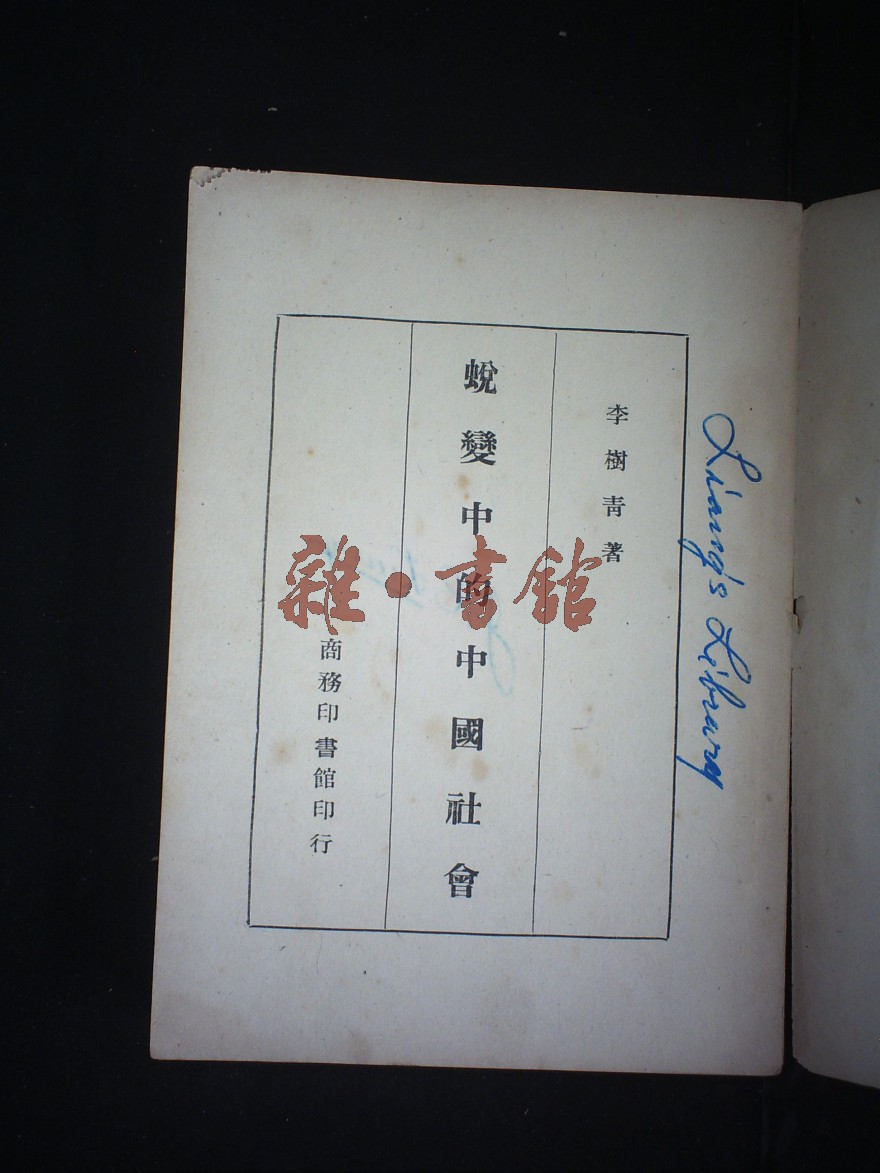 李樹青著
蛻變中的中國社會
商務印書館印行
Liang's Library
雜·書館